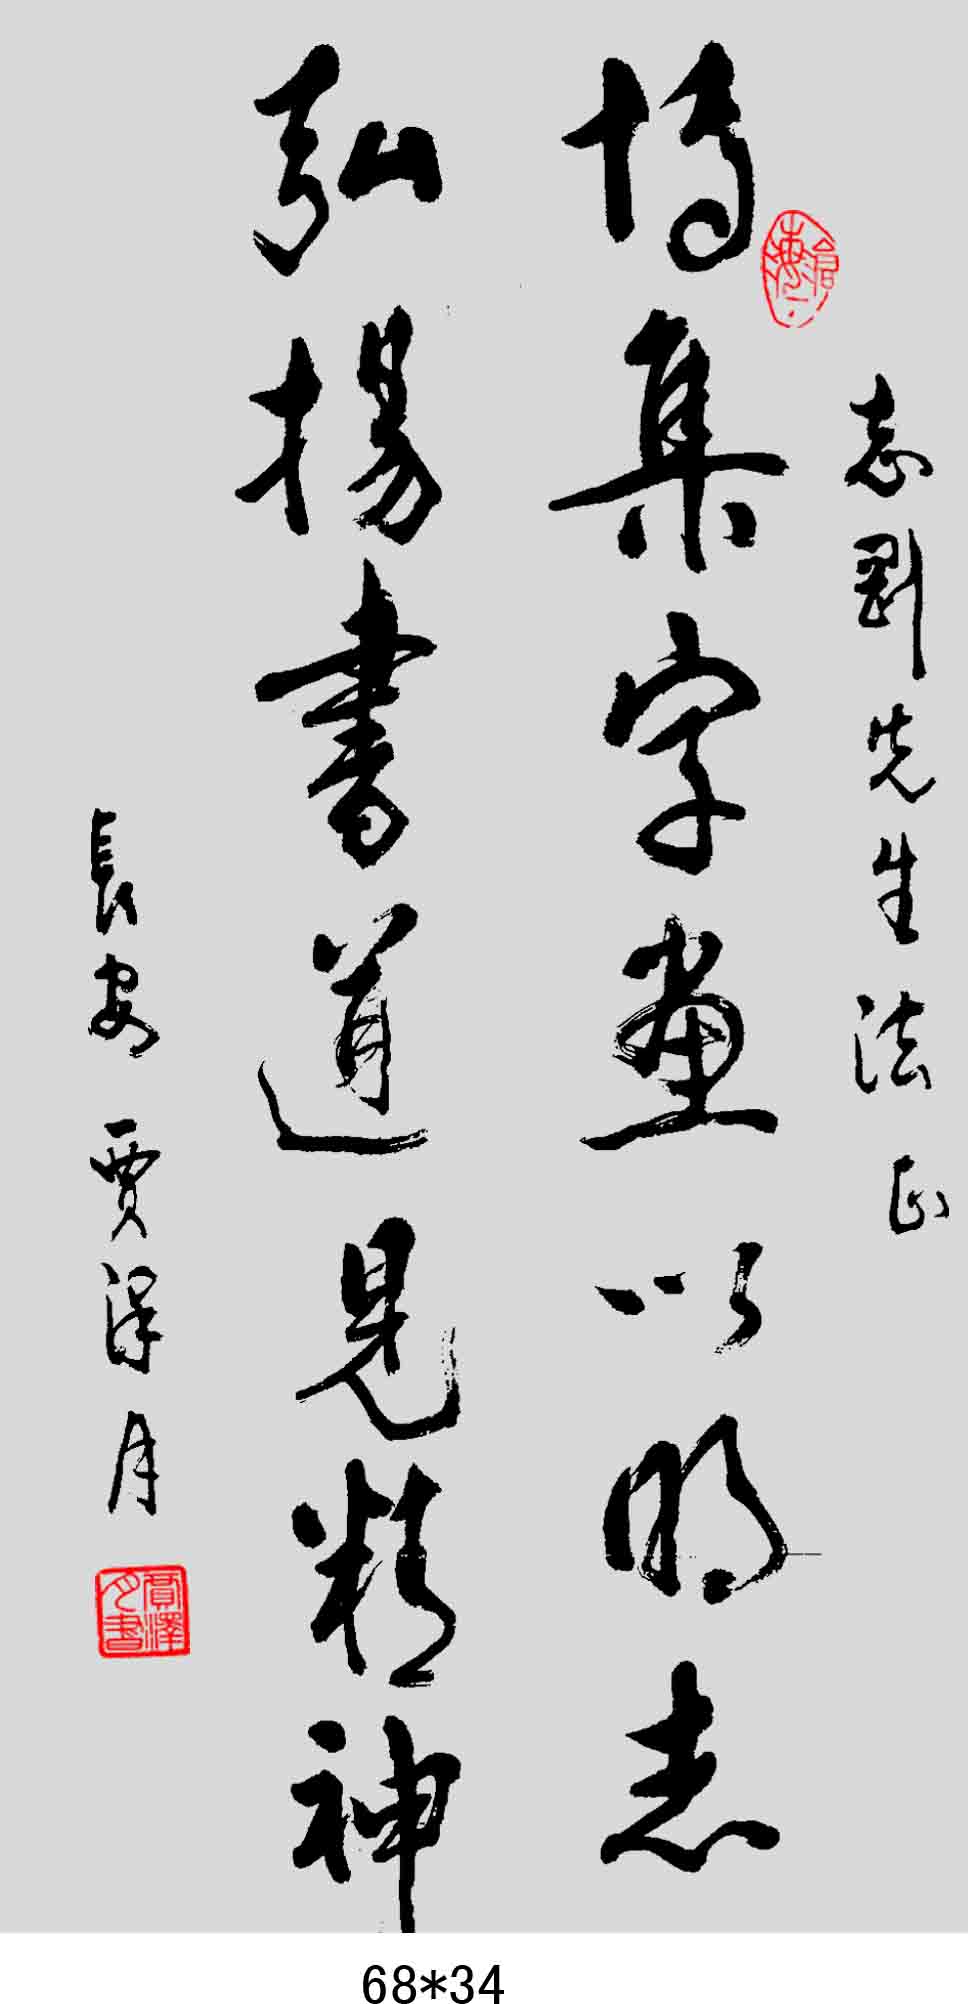 志剛先生法正
博集字畫以明志
弘揚書道見精神
長安賈澤月
賈澤月書
68*34